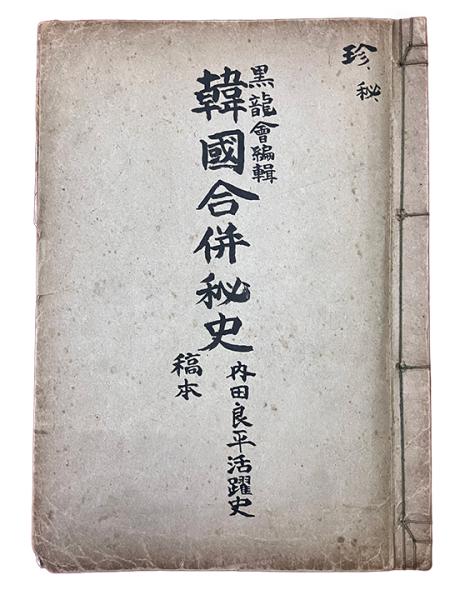 珍、秘
黒龍會編輯
韓國合併秘史
內田良平活躍史
稿本